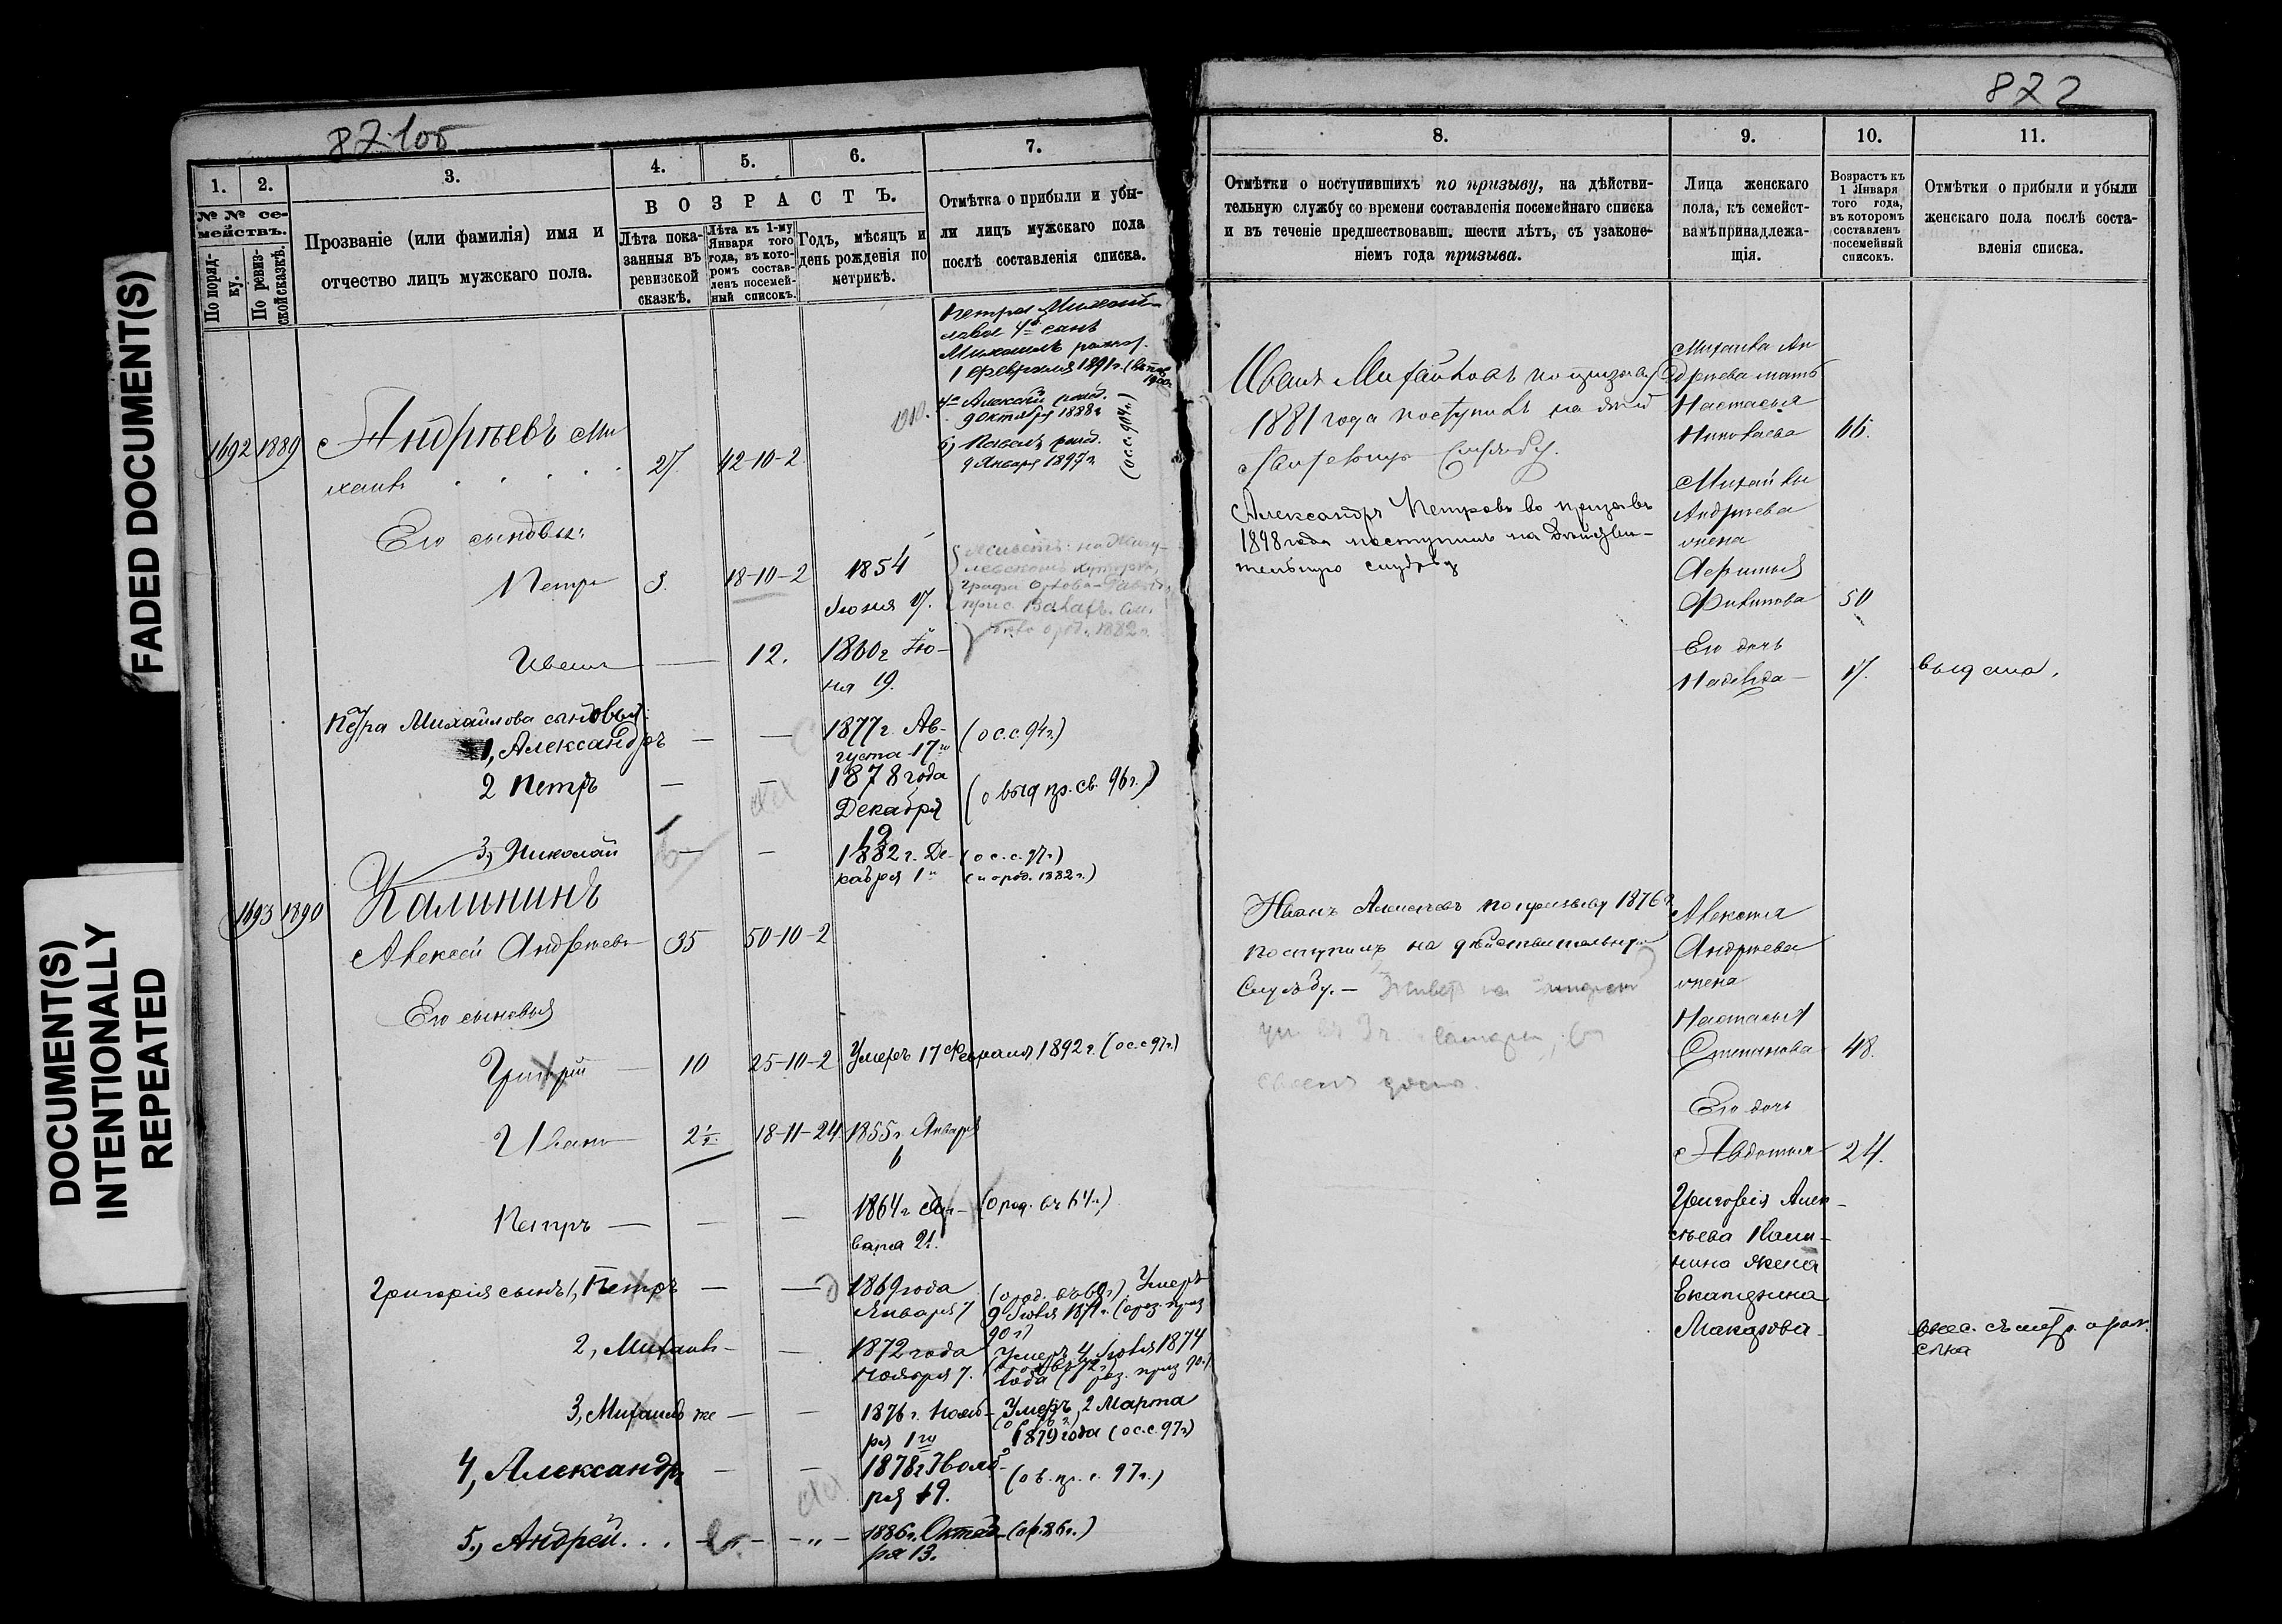 FADED DOCUMENT(S)
DOCUMENT(S)
INTENTIONALLY
REPEATED
872
1.
2.
3.
4.
5.
6.
7.
№ № се-
мействъ.
По поряд-
ку.
По ревиз-
ской сказкѣ.
Прозваніе (или фамилія) имя и
отчество лицъ мужскаго пола.
ВОЗРАСТЪ.
Лѣта пока-
занныя въ
ревизской
сказкѣ.
Лѣта къ 1-му
Января того
года, въ кото-
ромъ состав-
ленъ посемей-
ный списокъ.
Годъ, мѣсяцъ и
день рожденія по
метрикѣ.
Отмѣтка о прибыли и убы-
ли лицъ мужскаго пола
послѣ составленія списка.
Петра Михай-
лова 4й сынъ
Михаилъ
1 Февраля 1891 г.
Алексѣй рожд.
9 Октября 1888 г
Павелъ рожд.
9 Января 1897 г.
(о с.с. 914 г.)
1692 1889 Андрѣевъ Ми
хаилъ 27. 42-10-2
Его сыновья:
Петръ 3. 18-10-2 1854
Іюня 17.
графа Орлова-Давыд.
1882 г.
Иванъ — 12. 1860 г Ію-
ня 19.
Петра Михайлова сыновья:
1, Александръ — — 1877 г. Ав-
густа 17го (о с.с. 94 г.)
2 Петръ — — 1878 года
Декабря
12 (о выд пр. св. 96 г.)
3, Николай — — 1882 г. Де-
кабря 1го (о с.с. 97 г)
(о род. 1882 г.)
1693 1890 Калининъ
Алексѣй Андрѣевъ 35 50-10-2
Его сыновья
Григорій — 10 25-10-2 Умеръ 17 Февраля 1892 г. (о с.с 97 г.)
Иванъ 2½. 18-11-24 1855 г Января
6
Петръ — — — 1864 г Ян-
варя 21. (о род. въ 64 г.)
Григорія сынъ 1, Петръ — — 1869 года
Января 7 (о род. въ 69 г) Умеръ
9 Іюля 1871 г.
2, Михаилъ — — 1872 года
Ноября 7. Умеръ 4 Іюля 1874
года
3, Михаилъ же — — 1876 г. Нояб-
ря 1го Умеръ 2 Марта
1879 года (о с.с. 97 г)
4, Александръ — — 1878 г Нояб-
ря 19. (о в. пр. с. 97 г.)
5, Андрей . . . — „ — — „ — 1886 г. Октяб-
ря 13. (о р. 86 г.)
8.
9.
10.
11.
Отмѣтки о поступившихъ по призыву, на дѣйстви-
тельную службу со времени составленія посемейнаго списка
и въ теченіе предшествовавш. шести лѣтъ, съ узаконе-
ніемъ года призыва.
Лица женскаго
пола, къ семейст-
вамъ принадлежа-
щія.
Возрастъ къ
1 Января
того года,
въ которомъ
составленъ
посемейный
списокъ.
Отмѣтки о прибыли и убыли
женскаго пола послѣ соста-
вленія списка.
Иванъ Михайловъ по призыву
1881 года поступилъ на дѣй
ствительную службу.
Александръ Петровъ во призывъ
1898 года поступилъ на дѣйстви-
тельную службу
Михаила Ан
дрѣева мать
Настасья
Николаева 66.
Михайлы
Андрѣева
жена
Афимья
Филипова 50
Его дочь
Надежда — 17. выдана.
Иванъ Алексѣевъ по призыву 1876 г
поступилъ на дѣйствительную
службу. — Живетъ на
своемъ домѣ.
Алексѣя
Андрѣева
жена
Настасья
Степанова 48.
Его дочь
Авдотья 24.
Григорія Алек-
сѣева Кали-
нина жена
Екатерина
Макарова